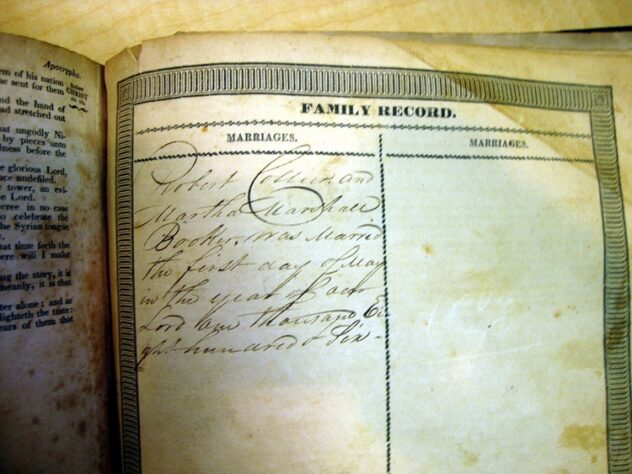 Apocrypha.
em of his nation
he sent for them
Before
CHRIST
cir. 161.
and the hand of
ad stretched out
that ungodly Ni-
by pieces unto
dness before the
e glorious Lord,
ace undefiled.
r tower, an evi-
e Lord.
ecree in no case
o celebrate the
he Syrian tongue
y.
that time forth the
ere will I make
ing the story, it is
meanly, it is that
ter alone; and as
lighteth the taste:
ears of them that
FAMILY RECORD.
MARRIAGES.
MARRIAGES.
Robert Collier and
Martha Marshall
Booker, was Married
the first day of May
in the year of our
Lord one thousand Ei
ght hundred & Six -